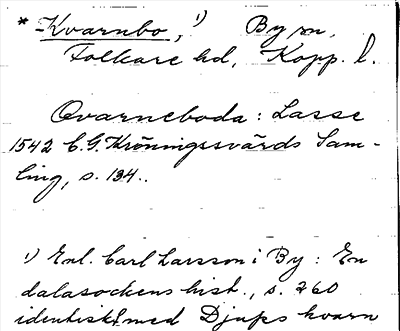 * Kvarnbo,¹) By sn,
Folkare hd, Kopp. l.
Qvarneboda: Lasse
1542 C.G. Kröningssvärds Sam-
ling, s. 134..
¹) Enl. Carl Larsson i By: En
dalasockens hist., s. 260
identiskt med Djups kvarn